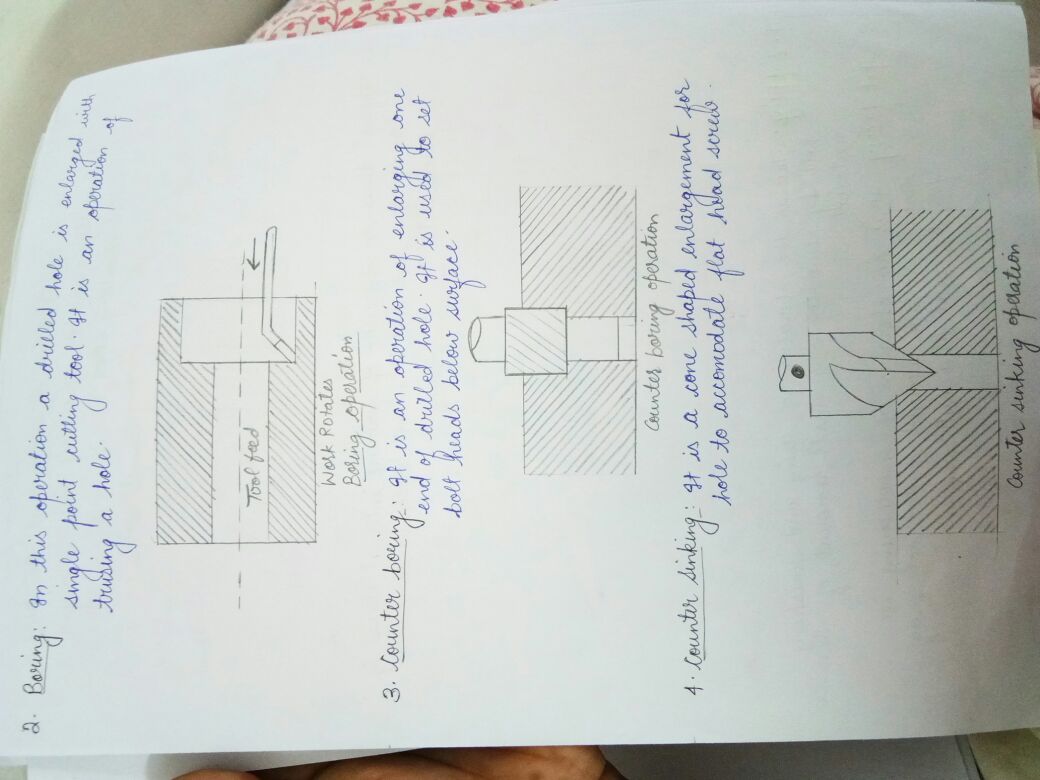 2. Boring: In this operation a drilled hole is enlarged with
single point cutting tool. It is an operation of
truing a hole.
Tool feed
Work Rotates
Boring operation
3. Counter boring: It is an operation of enlarging one
end of drilled hole. It is used to set
bolt heads below surface.
Counter boring operation
4. Counter Sinking: It is a cone shaped enlargement for
hole to accomodate flat head screw.
Counter sinking operation